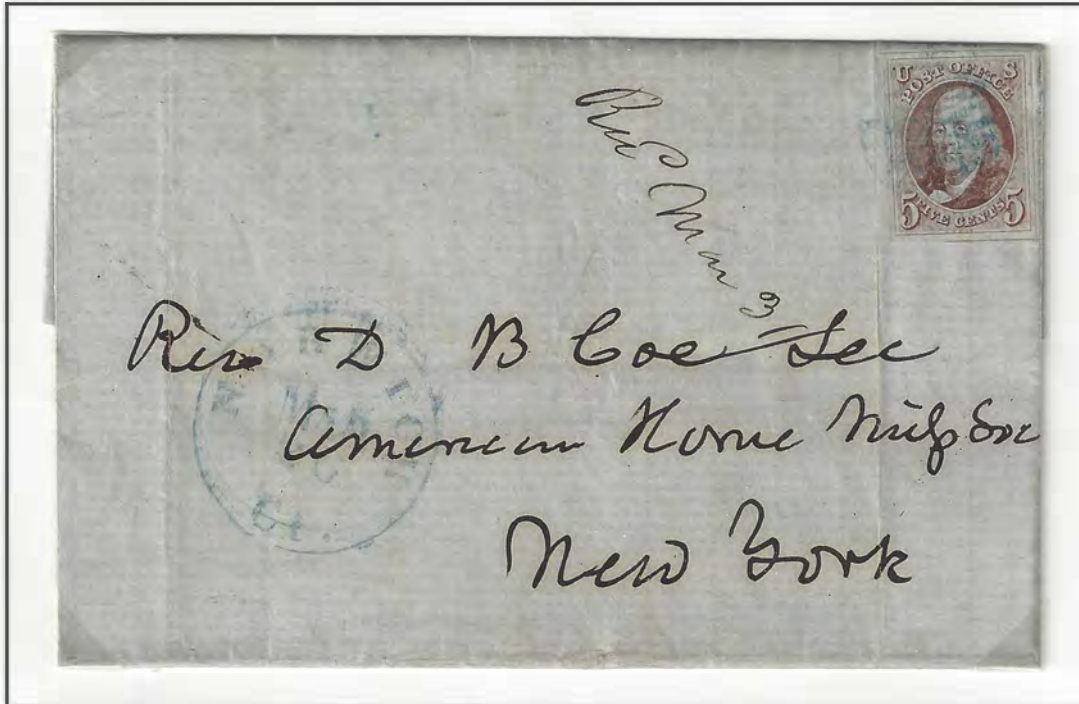 U S
POST OFFICE
5 FIVE CENTS 5
Rec Mar 3
Rev D B Coe Sec
American Home Miss Soc
New York
MAR
Ct.